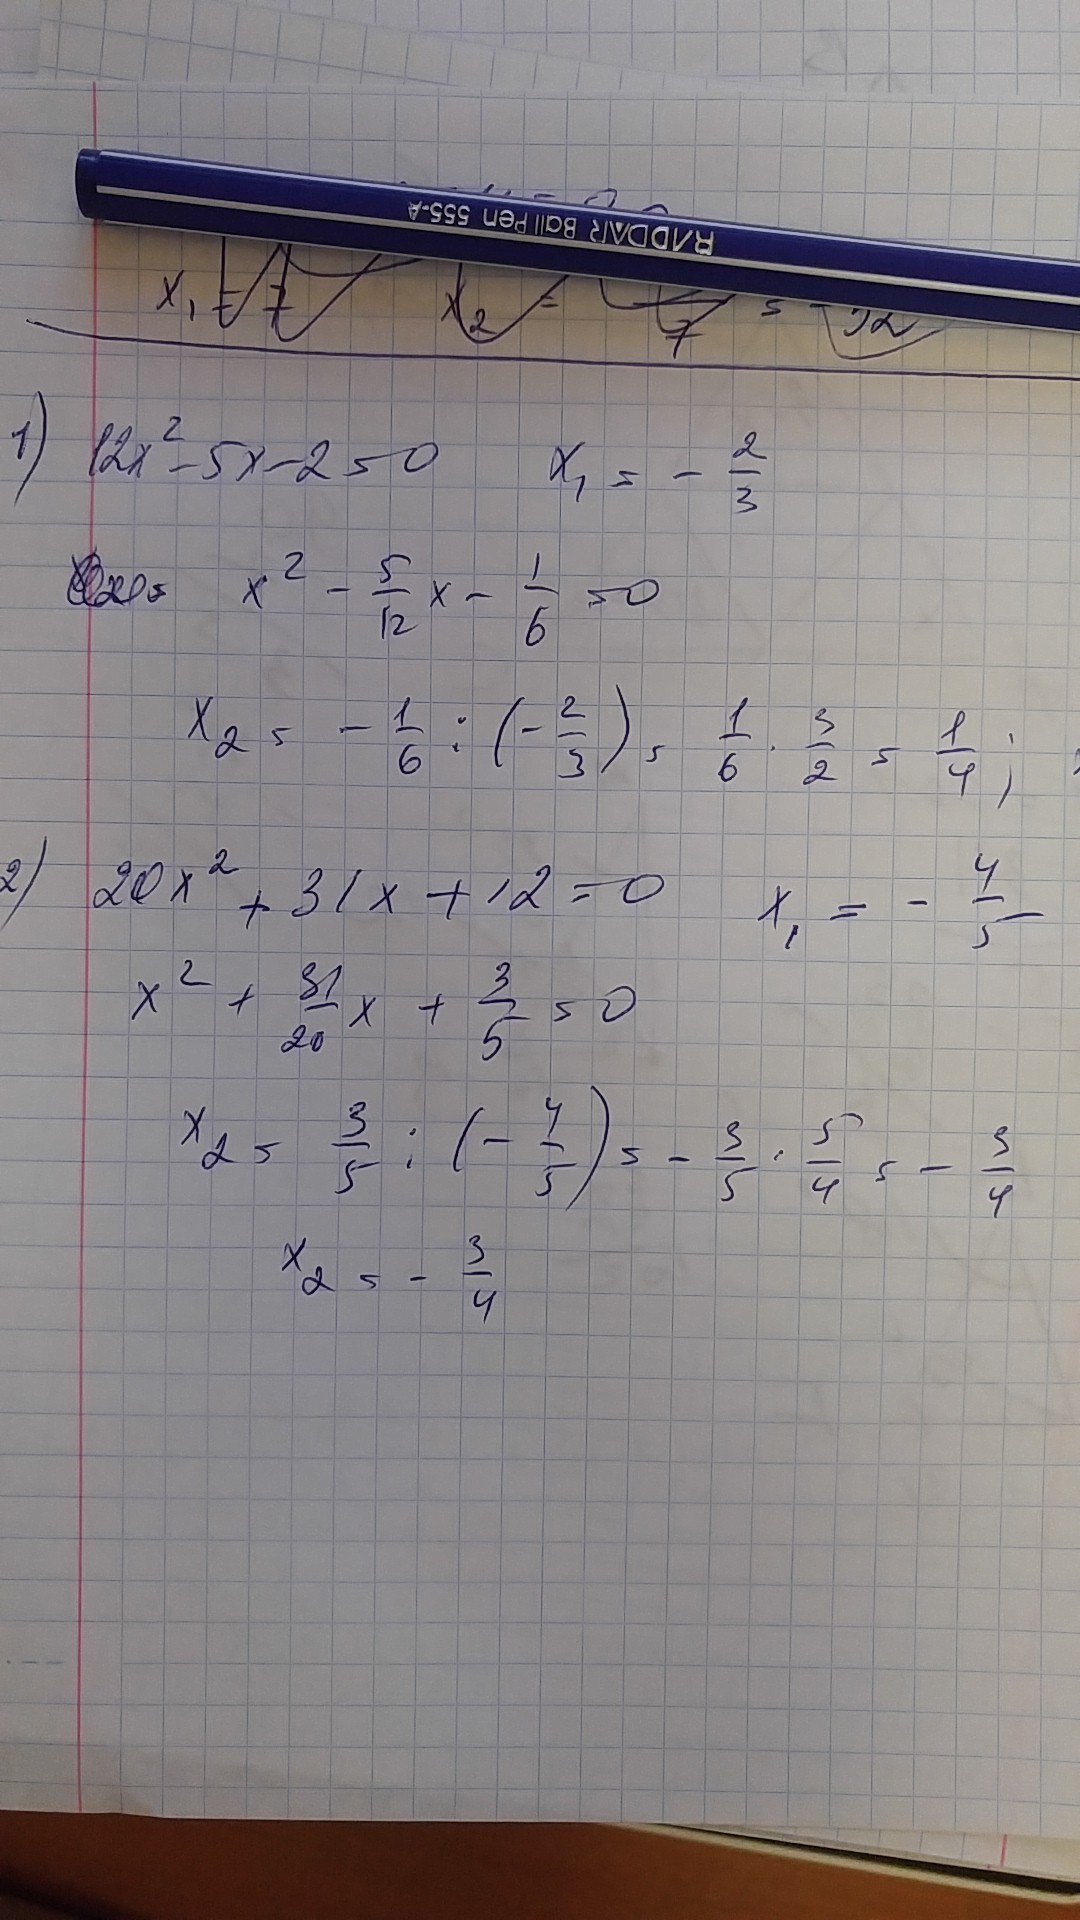 RADDAR Ball Pen 555-A
x₁ = 7 x₂ =
1) 12x² - 5x - 2 = 0 x₁ = - 2/3
x² - 5/12 x - 1/6 = 0
x₂ = - 1/6 : (- 2/3) = 1/6 · 3/2 = 1/4 ;
2) 20x² + 31x + 12 = 0 x₁ = - 4/5
x² + 31/20 x + 3/5 = 0
x₂ = 3/5 : (- 4/5) = - 3/5 · 5/4 = - 3/4
x₂ = - 3/4